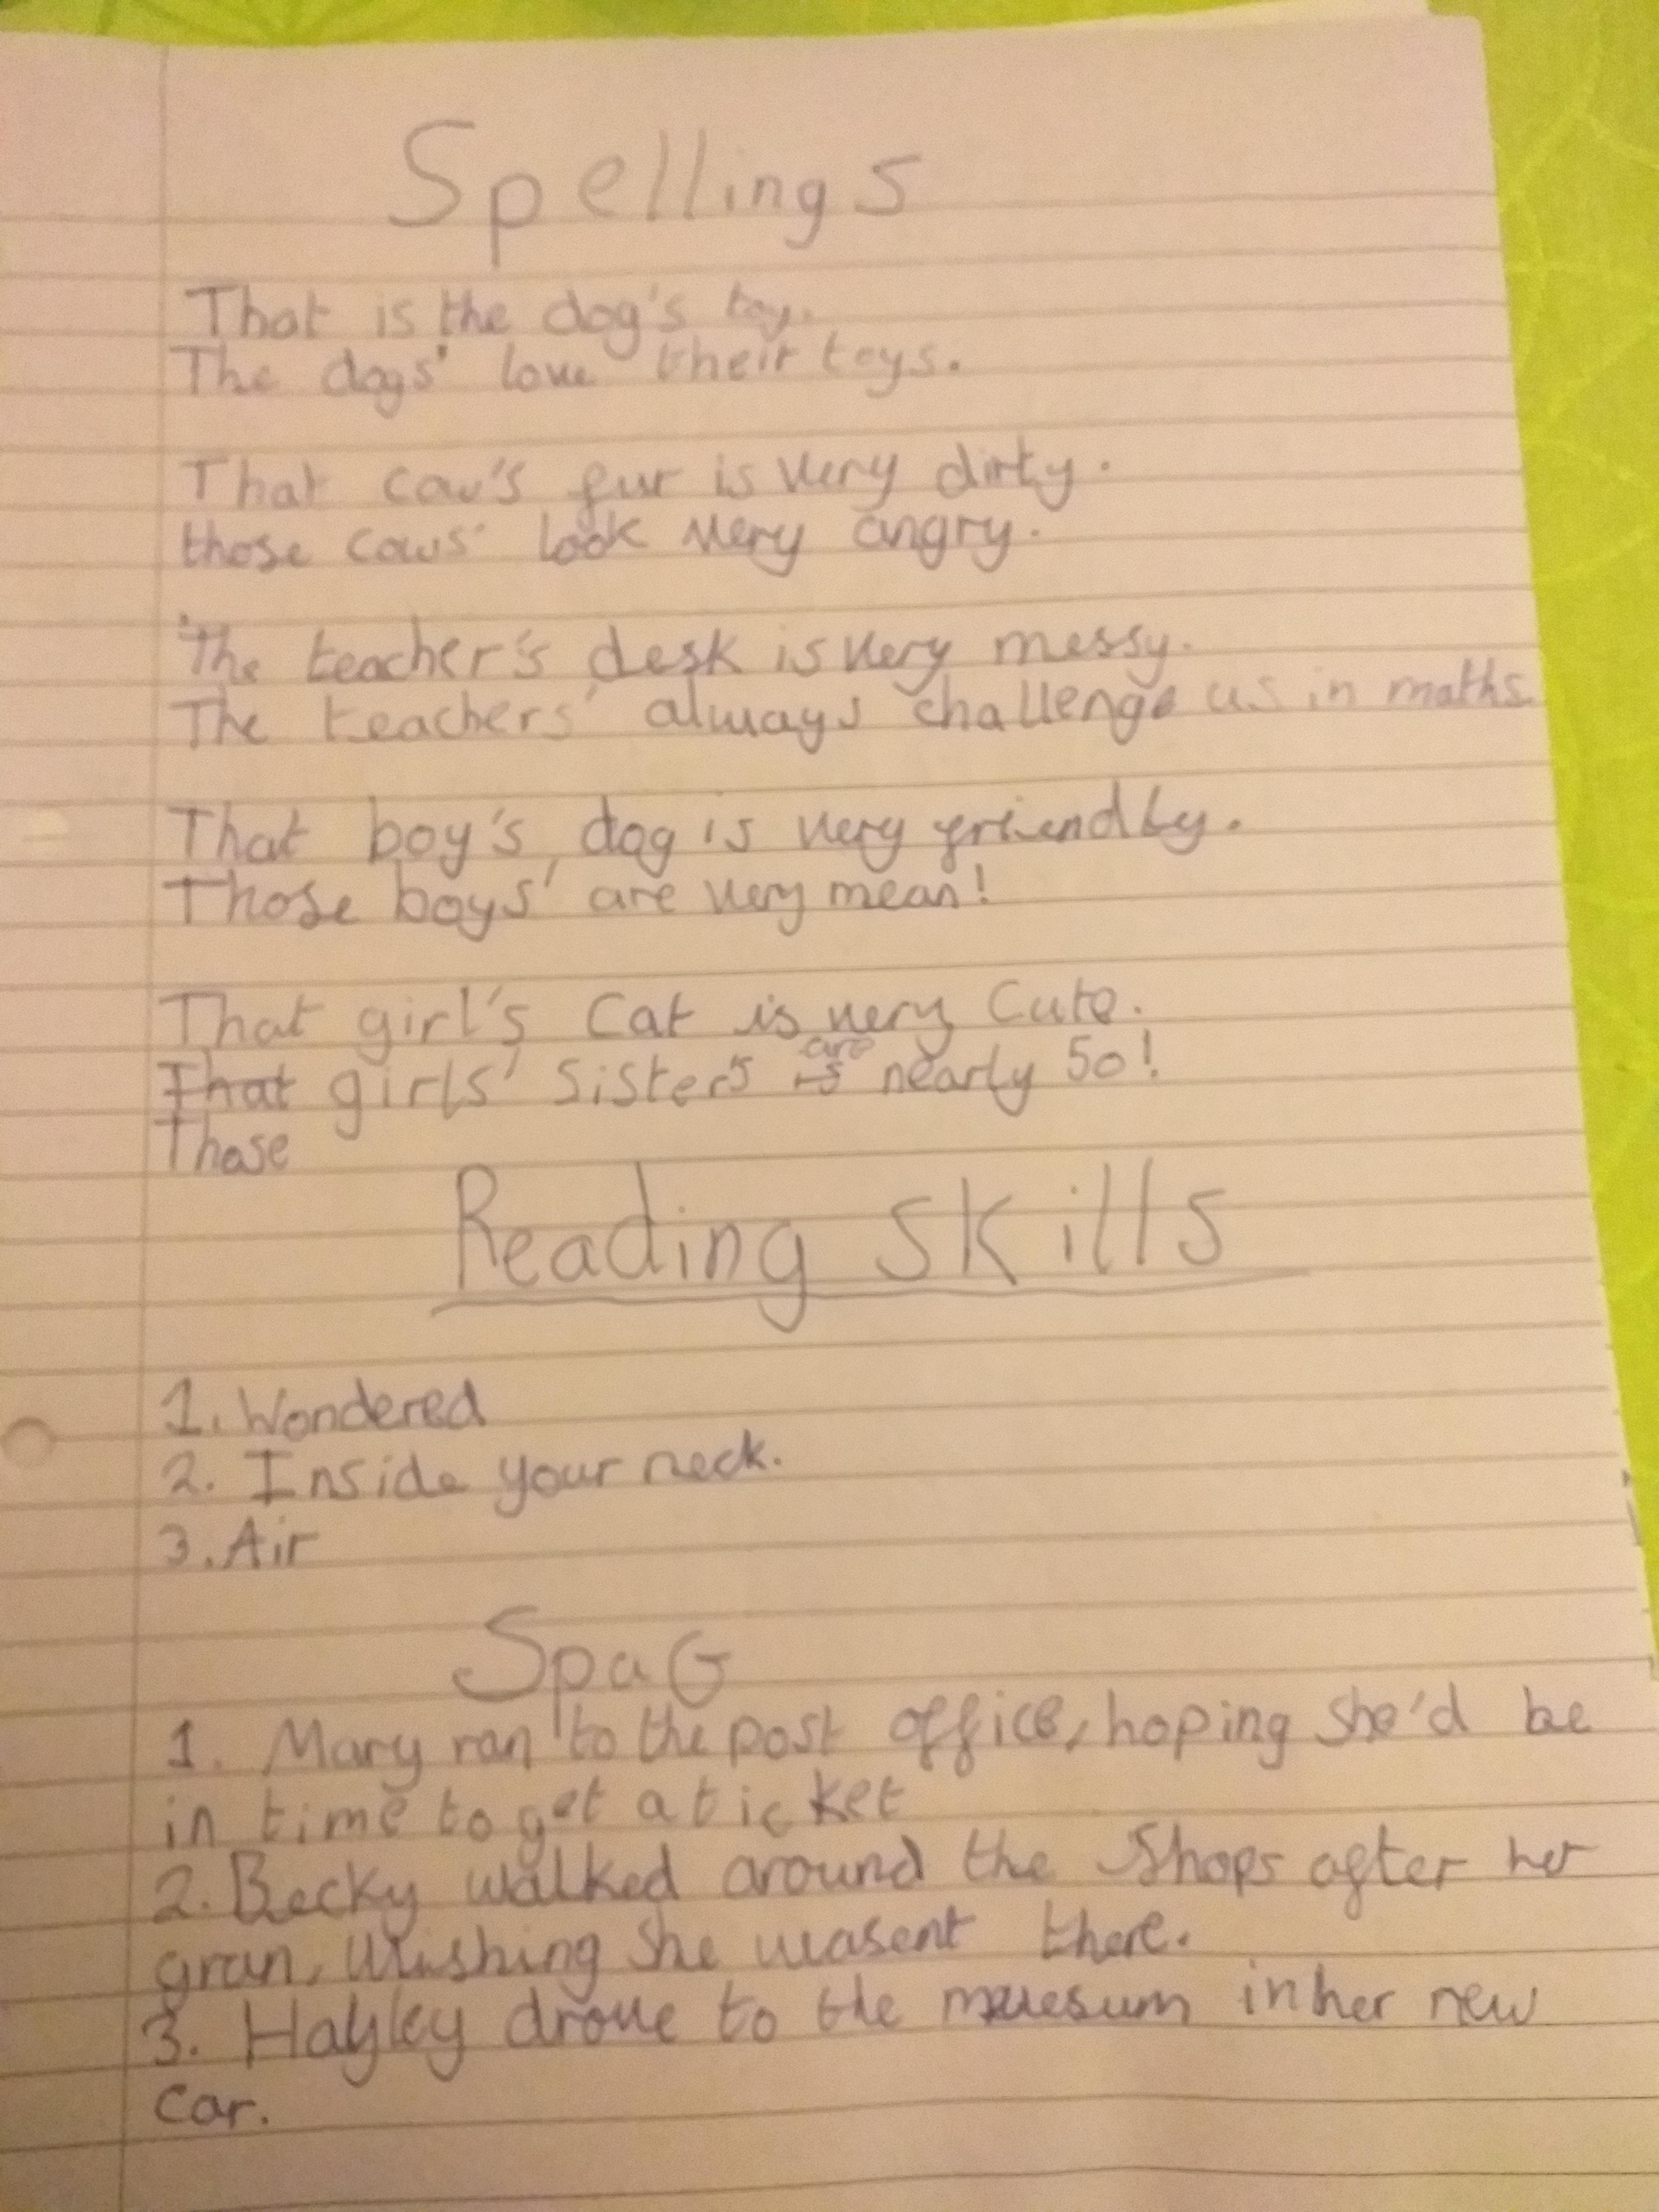 Spellings
That is the dog's toy.
The dogs' love their toys.
That cow's fur is very dirty.
those cows' look very angry.
The teacher's desk is very messy.
The teachers' always challenge us in maths
That boy's dog is very friendly.
Those boys' are very mean!
That girl's Cat is very Cute.
are
That girls' Sister's is nearly 50!
Those
Reading skills
1. Wondered
2. Inside your neck.
3. Air
SpaG
1. Mary ran to the post office, hoping she'd be
in time to get a ticket
2. Becky walked around the Shops after her
gran, wishing she wasent there.
3. Hayley drove to the muesum in her new
car.